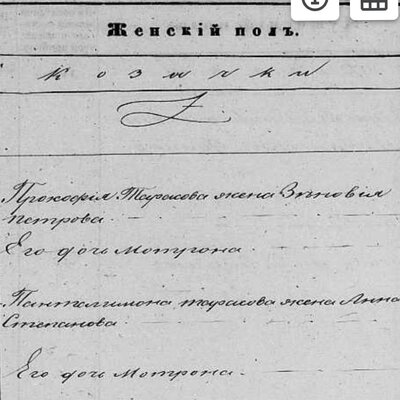 Женскій полъ.
козачки
Прокофія Тарасова жена Зѣновія
Петрова
Его дочь Мотрона
Пантелимона Тарасова жена Анна
Степанова
Его дочь Мотрона